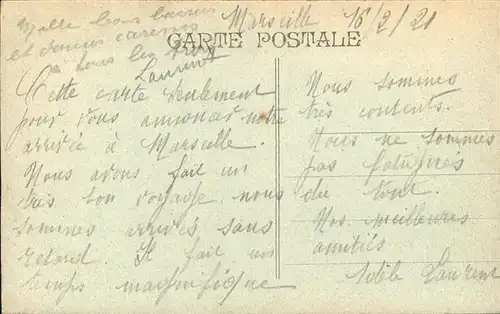 Marseille 16/2/21
Mille bons baisers
et douces caresses
à tous les trois
Laurent
CARTE POSTALE
Cette carte seulement
pour vous annoncer notre
arrivée à Marseille.
Nous avons fait un
très bon voyage nous
sommes arrivés sans
retard. Il fait un
temps magnifique
Nous sommes
très contents.
Nous ne sommes
pas fatigués
du tout.
Nos meilleures
amitiés
Adèle Laurent